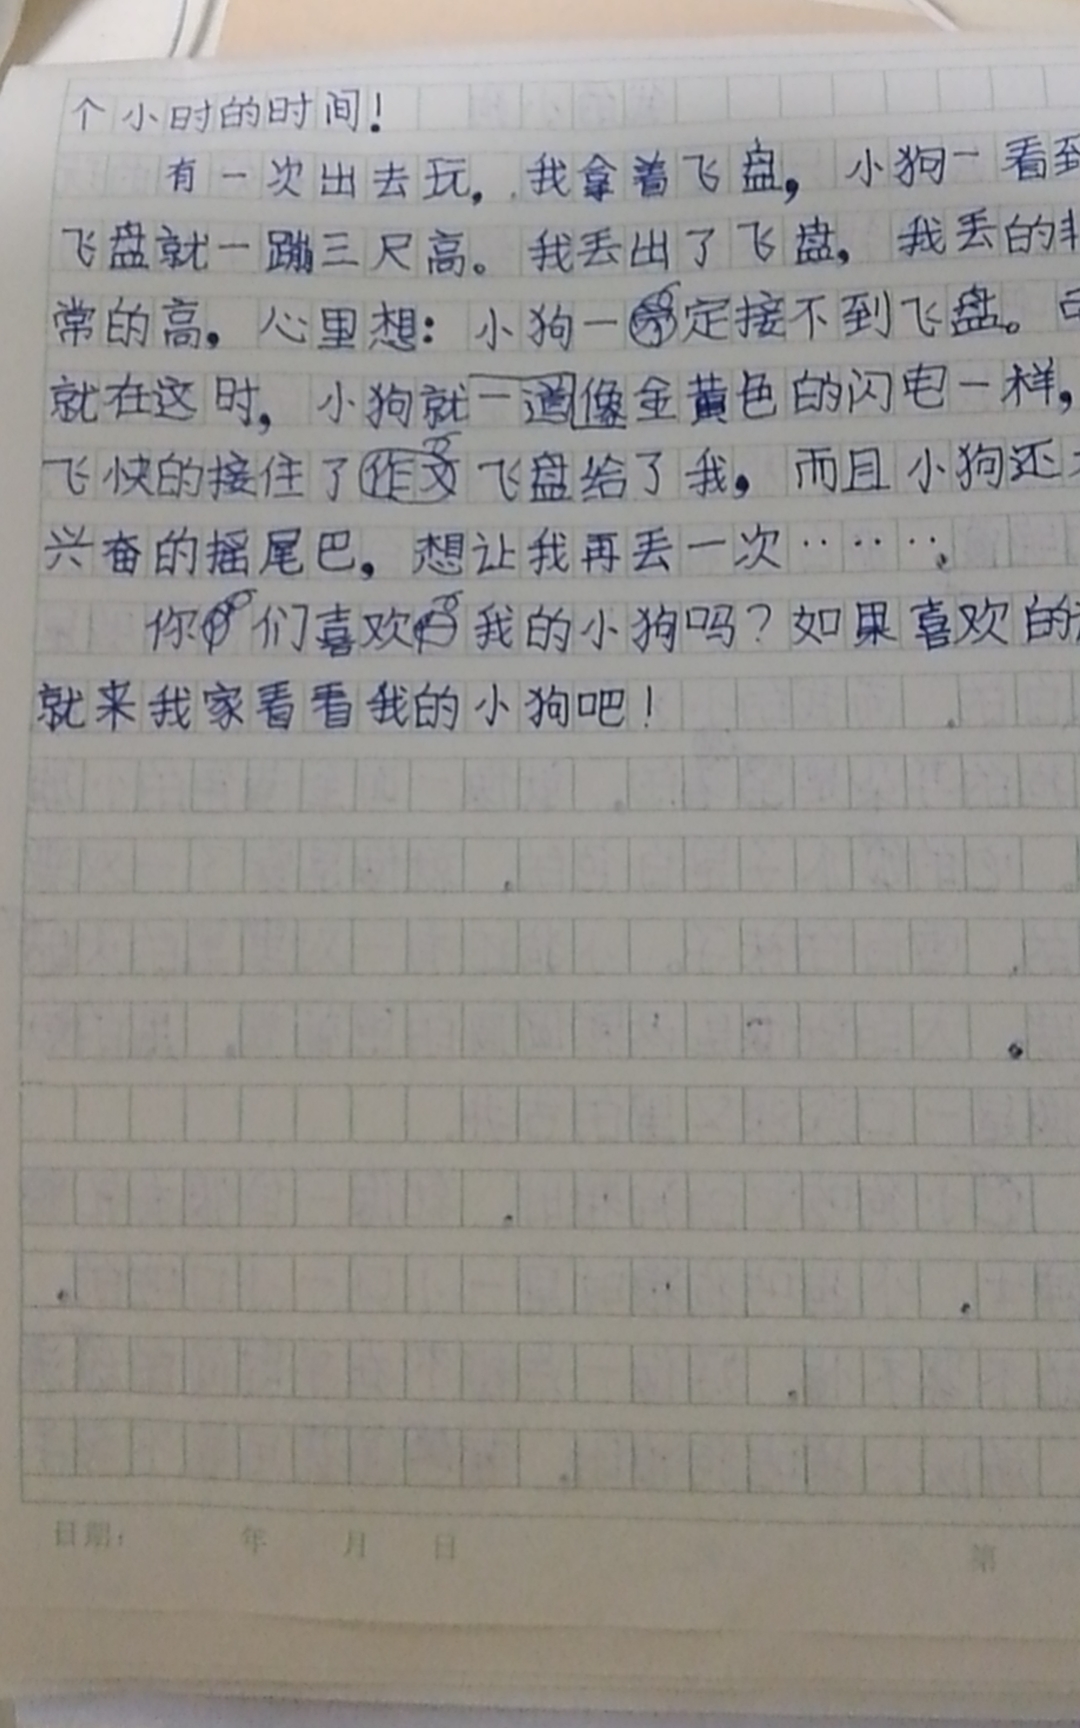 个小时的时间！
有一次出去玩，我拿着飞盘，小狗一看到
飞盘就一蹦三尺高。我丢出了飞盘，我丢的非
常的高，心里想：小狗一定接不到飞盘。可
就在这时，小狗就一道像金黄色的闪电一样，
飞快的接住了飞盘给了我，而且小狗还
兴奋的摇尾巴，想让我再丢一次……
你们喜欢我的小狗吗？如果喜欢的
就来我家看看我的小狗吧！
日期： 年 月 日 第